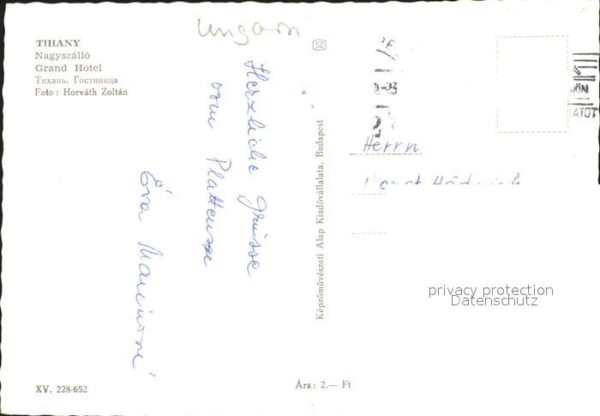 Ungarn
TIHANY
Nagyszálló
Grand Hotel
Тихань, Гостиница
Foto : Horváth Zoltán
Herzliche Grüsse
vom Plattensee
Éva
SZ
Képzőművészeti Alap Kiadóvállalata, Budapest
Herrn
privacy protection
Datenschutz
XV. 228-652
Ára : 2.— Ft